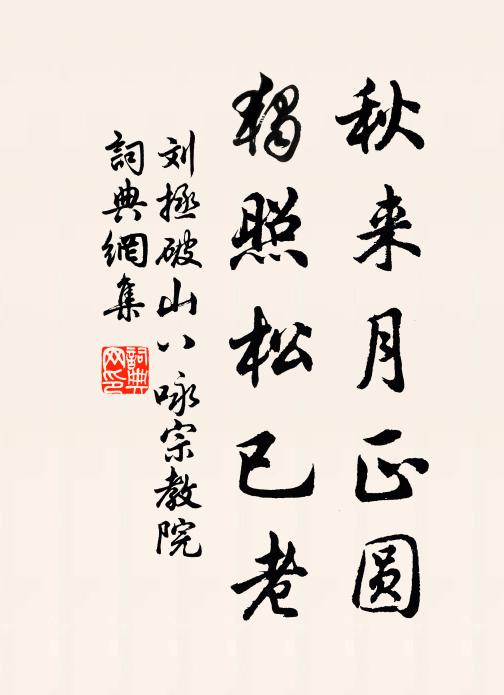 秋来月正圆
独照松已老
刘拯破山八咏宗教院
詞典網集
詞典网印